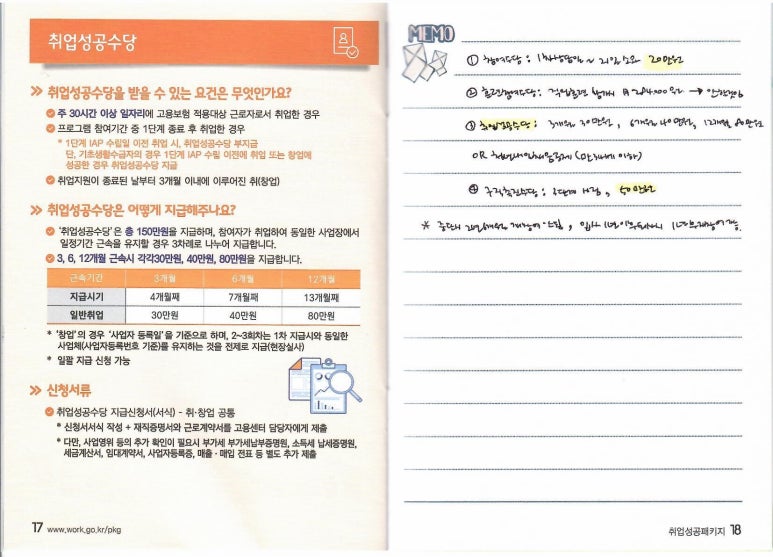 취업성공수당
취업성공수당을 받을 수 있는 요건은 무엇인가요?
주 30시간 이상 일자리에 고용보험 적용대상 근로자로서 취업한 경우
프로그램 참여기간 중 1단계 종료 후 취업한 경우
* 1단계 IAP 수립일 이전 취업 시, 취업성공수당 부지급
단, 기초생활수급자의 경우 1단계 IAP 수립 이전에 취업 또는 창업에
성공한 경우 취업성공수당 지급
취업지원이 종료된 날부터 3개월 이내에 이루어진 취(창업)
취업성공수당은 어떻게 지급해주나요?
'취업성공수당'은 총 150만원을 지급하며, 참여자가 취업하여 동일한 사업장에서
일정기간 근속을 유지할 경우 3차례로 나누어 지급합니다.
3, 6, 12개월 근속시 각각30만원, 40만원, 80만원을 지급합니다.
근속기간 3개월 6개월 12개월
지급시기 4개월째 7개월째 13개월째
일반취업 30만원 40만원 80만원
* '창업'의 경우 '사업자 등록일'을 기준으로 하며, 2~3회차는 1차 지급시와 동일한
사업체(사업자등록번호 기준)를 유지하는 것을 전제로 지급(현장실사)
* 일괄 지급 신청 가능
신청서류
취업성공수당 지급신청서(서식) - 취·창업 공통
* 신청서서식 작성 + 재직증명서와 근로계약서를 고용센터 담당자에게 제출
* 다만, 사업영위 등의 추가 확인이 필요시 부가세 부가세납부증명원, 소득세 납세증명원,
세금계산서, 임대계약서, 사업자등록증, 매출·매입 전표 등 별도 추가 제출
17 www.work.go.kr/pkg
MEMO
① 참여수당 : 1차상담일 ~ 21일 소요 20만원
② 훈련참여수당 : 284,000원 →
③ 취업성공수당 : 3개월 30만원, 6개월 40만원, 12개월 80만원
OR
④ 구직촉진수당 : 3단계 시행, 50만원
*
취업성공패키지 18